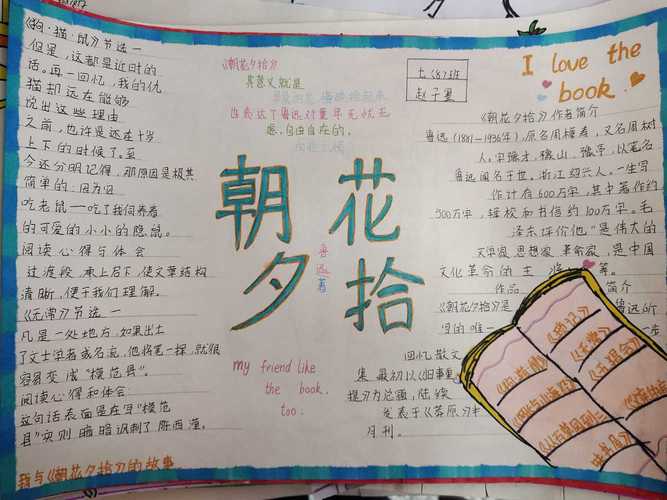 《狗·猫·鼠》节选一
但是，这都是近时的
话。再一回忆，我的仇
猫却远在能够
说出这些理由
之前，也许是还在十岁
上下的时候了。至
今还分明记得，那原因是极其
简单的：因为它
吃老鼠——吃了我饲养着
的可爱的小小的隐鼠。
阅读心得与体会
过渡段，承上启下，使文章结构
清晰，便于我们理解。
《无常》节选一
凡是一处地方，如果出土
了文士学者或名流，他将笔一探，就很
容易变成"模范县"。
阅读心得和体会
这句话表面是在写"模范
县"实则暗暗讽刺了陈西滢。
我与《朝花夕拾》的故事
《朝花夕拾》
其意义就是
也表达了鲁迅对童年无忧无
虑，自由自在的，
朝花
夕拾
鲁迅著
my friend like
the book.
too.
七(8)班
I love the
book.
《朝花夕拾》作者简介
鲁迅(1881—1936年)，原名周樟寿，又名周树
人，字豫才，豫山，豫亭，以笔名
鲁迅闻名于世，浙江绍兴人。一生写
作计有600万字，其中著作约
500万字，辑校和书信约100万字。毛
泽东评价他"是伟大的
文学家 思想家 革命家，是中国
文化革命的主 等。
作品 简介
《朝花夕拾》是 鲁迅所
写的唯一 一
回忆散文
集 最初以《旧事重
提》为总题，陆续
发表于《莽原》半
月刊。
《琐记》
《无常》
《五猖会》